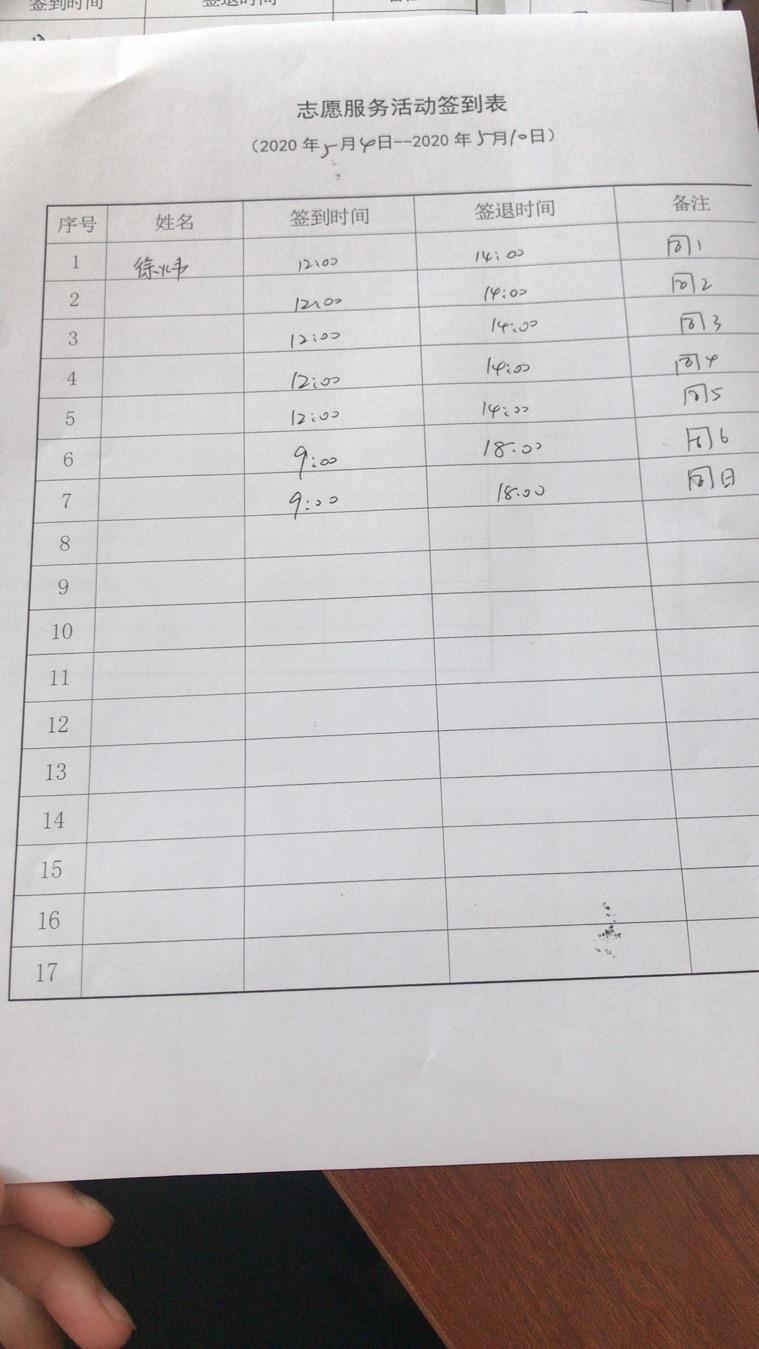 签到时间 签退时间
志愿服务活动签到表
(2020 年5月4日--2020 年5月10日)
序号 姓名 签到时间 签退时间 备注
1 徐炜 12:00 14:00 周1
2 12:00 14:00 周2
3 12:00 14:00 周3
4 12:00 14:00 周4
5 12:00 14:00 周5
6 9:00 18:00 周6
7 9:00 18:00 周日
8
9
10
11
12
13
14
15
16
17